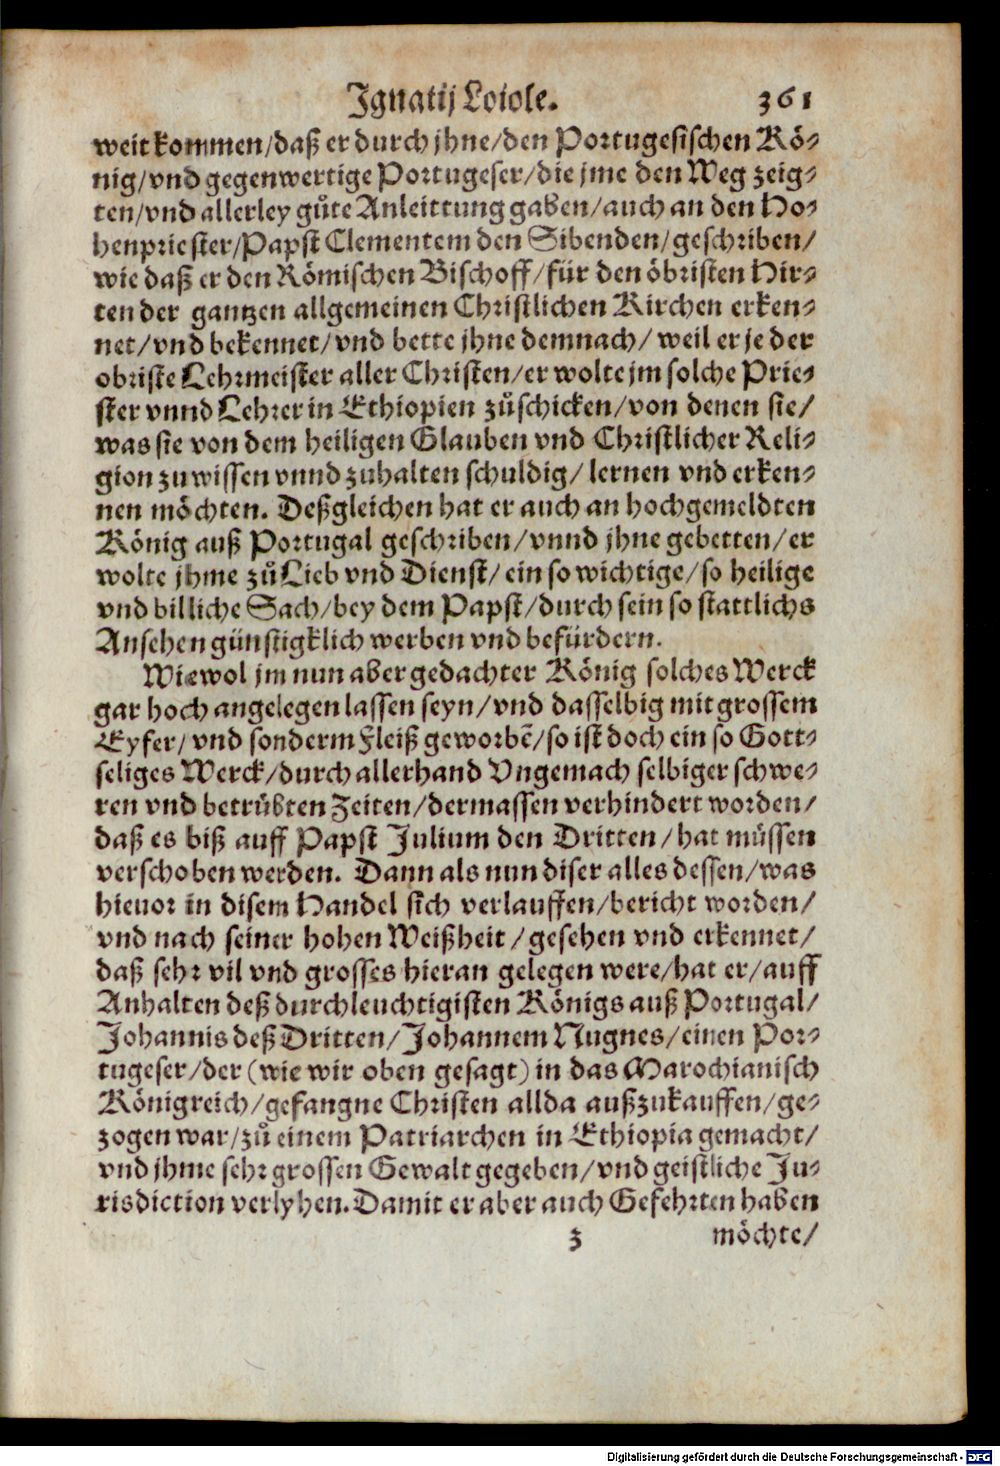 Ignatij Loiole. 361
weit kommen/daß er durch jhne/den Portugesischen Kö⸗
nig/vnd gegenwertige Portugeser/die jme den Weg zeig⸗
ten/vnd allerley gůte Anleittung gaben/auch an den Ho⸗
henpriester/Papst Clementem den Sibenden/geschriben/
wie daß er den Römischen Bischoff/für den öbristen Hir⸗
ten der gantzen allgemeinen Christlichen Kirchen erken⸗
net/vnd bekennet/vnd bette jhne demnach/ weil er je der
obriste Lehrmeister aller Christen/er wolte jm solche Prie⸗
ster vnnd Lehrer in Ethiopien zůschicken/von denen sie/
was sie von dem heiligen Glauben vnd Christlicher Reli⸗
gion zu wissen vnnd zuhalten schuldig/ lernen vnd erken⸗
nen möchten. Deßgleichen hat er auch an hochgemeldten
König auß Portugal geschriben/vnnd jhne gebetten/er
wolte jhme zů Lieb vnd Dienst/ ein so wichtige/so heilige
vnd billiche Sach/bey dem Papst/durch sein so stattlichs
Ansehen günstigklich werben vnd befürdern.
Wiewol jm nun aber gedachter König solches Werck
gar hoch angelegen lassen seyn/vnd dasselbig mit grossem
Eyfer/ vnd sonderm Fleiß geworbẽ/so ist doch ein so Gott⸗
seliges Werck/durch allerhand Vngemach selbiger schwe⸗
ren vnd betrübten Zeiten/dermassen verhindert worden/
daß es biß auff Papst Julium den Dritten/hat müssen
verschoben werden. Dann als nun diser alles dessen/was
hieuor in disem Handel sich verlauffen/bericht worden/
vnd nach seiner hohen Weißheit/gesehen vnd erkennet/
daß sehr vil vnd grosses hieran gelegen were/hat er/auff
Anhalten deß durchleuchtigisten Königs auß Portugal/
Johannis deß Dritten/Johannem Nugnes/einen Por⸗
tugeser/der (wie wir oben gesagt) in das Marochianisch
Königreich/gefangne Christen allda außzukauffen/ge⸗
zogen war/zů einem Patriarchen in Ethiopia gemacht/
vnd jhme sehr grossen Gewalt gegeben/vnd geistliche Ju⸗
risdiction verlyhen. Damit er aber auch Gefehrten haben
z möchte/
Digitalisierung gefördert durch die Deutsche Forschungsgemeinschaft - DFG